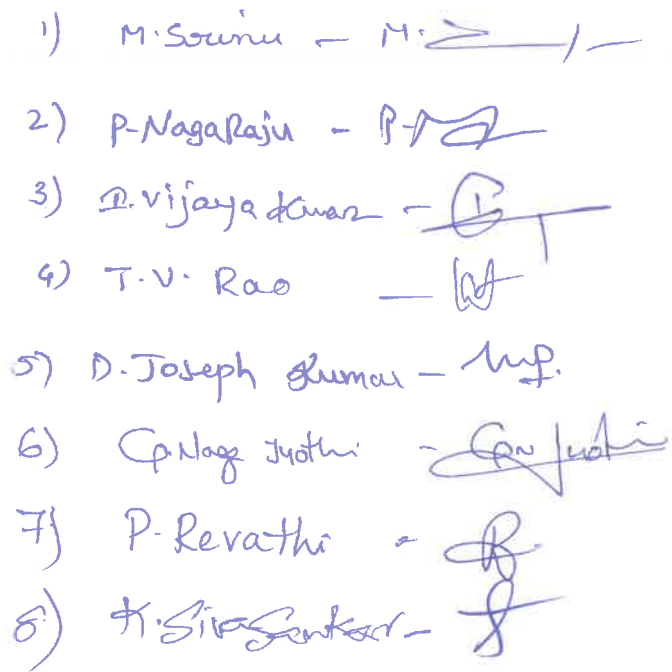 1) M. Srinu - M.
2) P. NagaRaju - P.
3) D. Vijaya Kumar -
4) T. V. Rao -
5) D. Joseph Kumar -
6) Naga Jyothi - Jyothi
7) P. Revathi -
8) K. Siva Sankar -